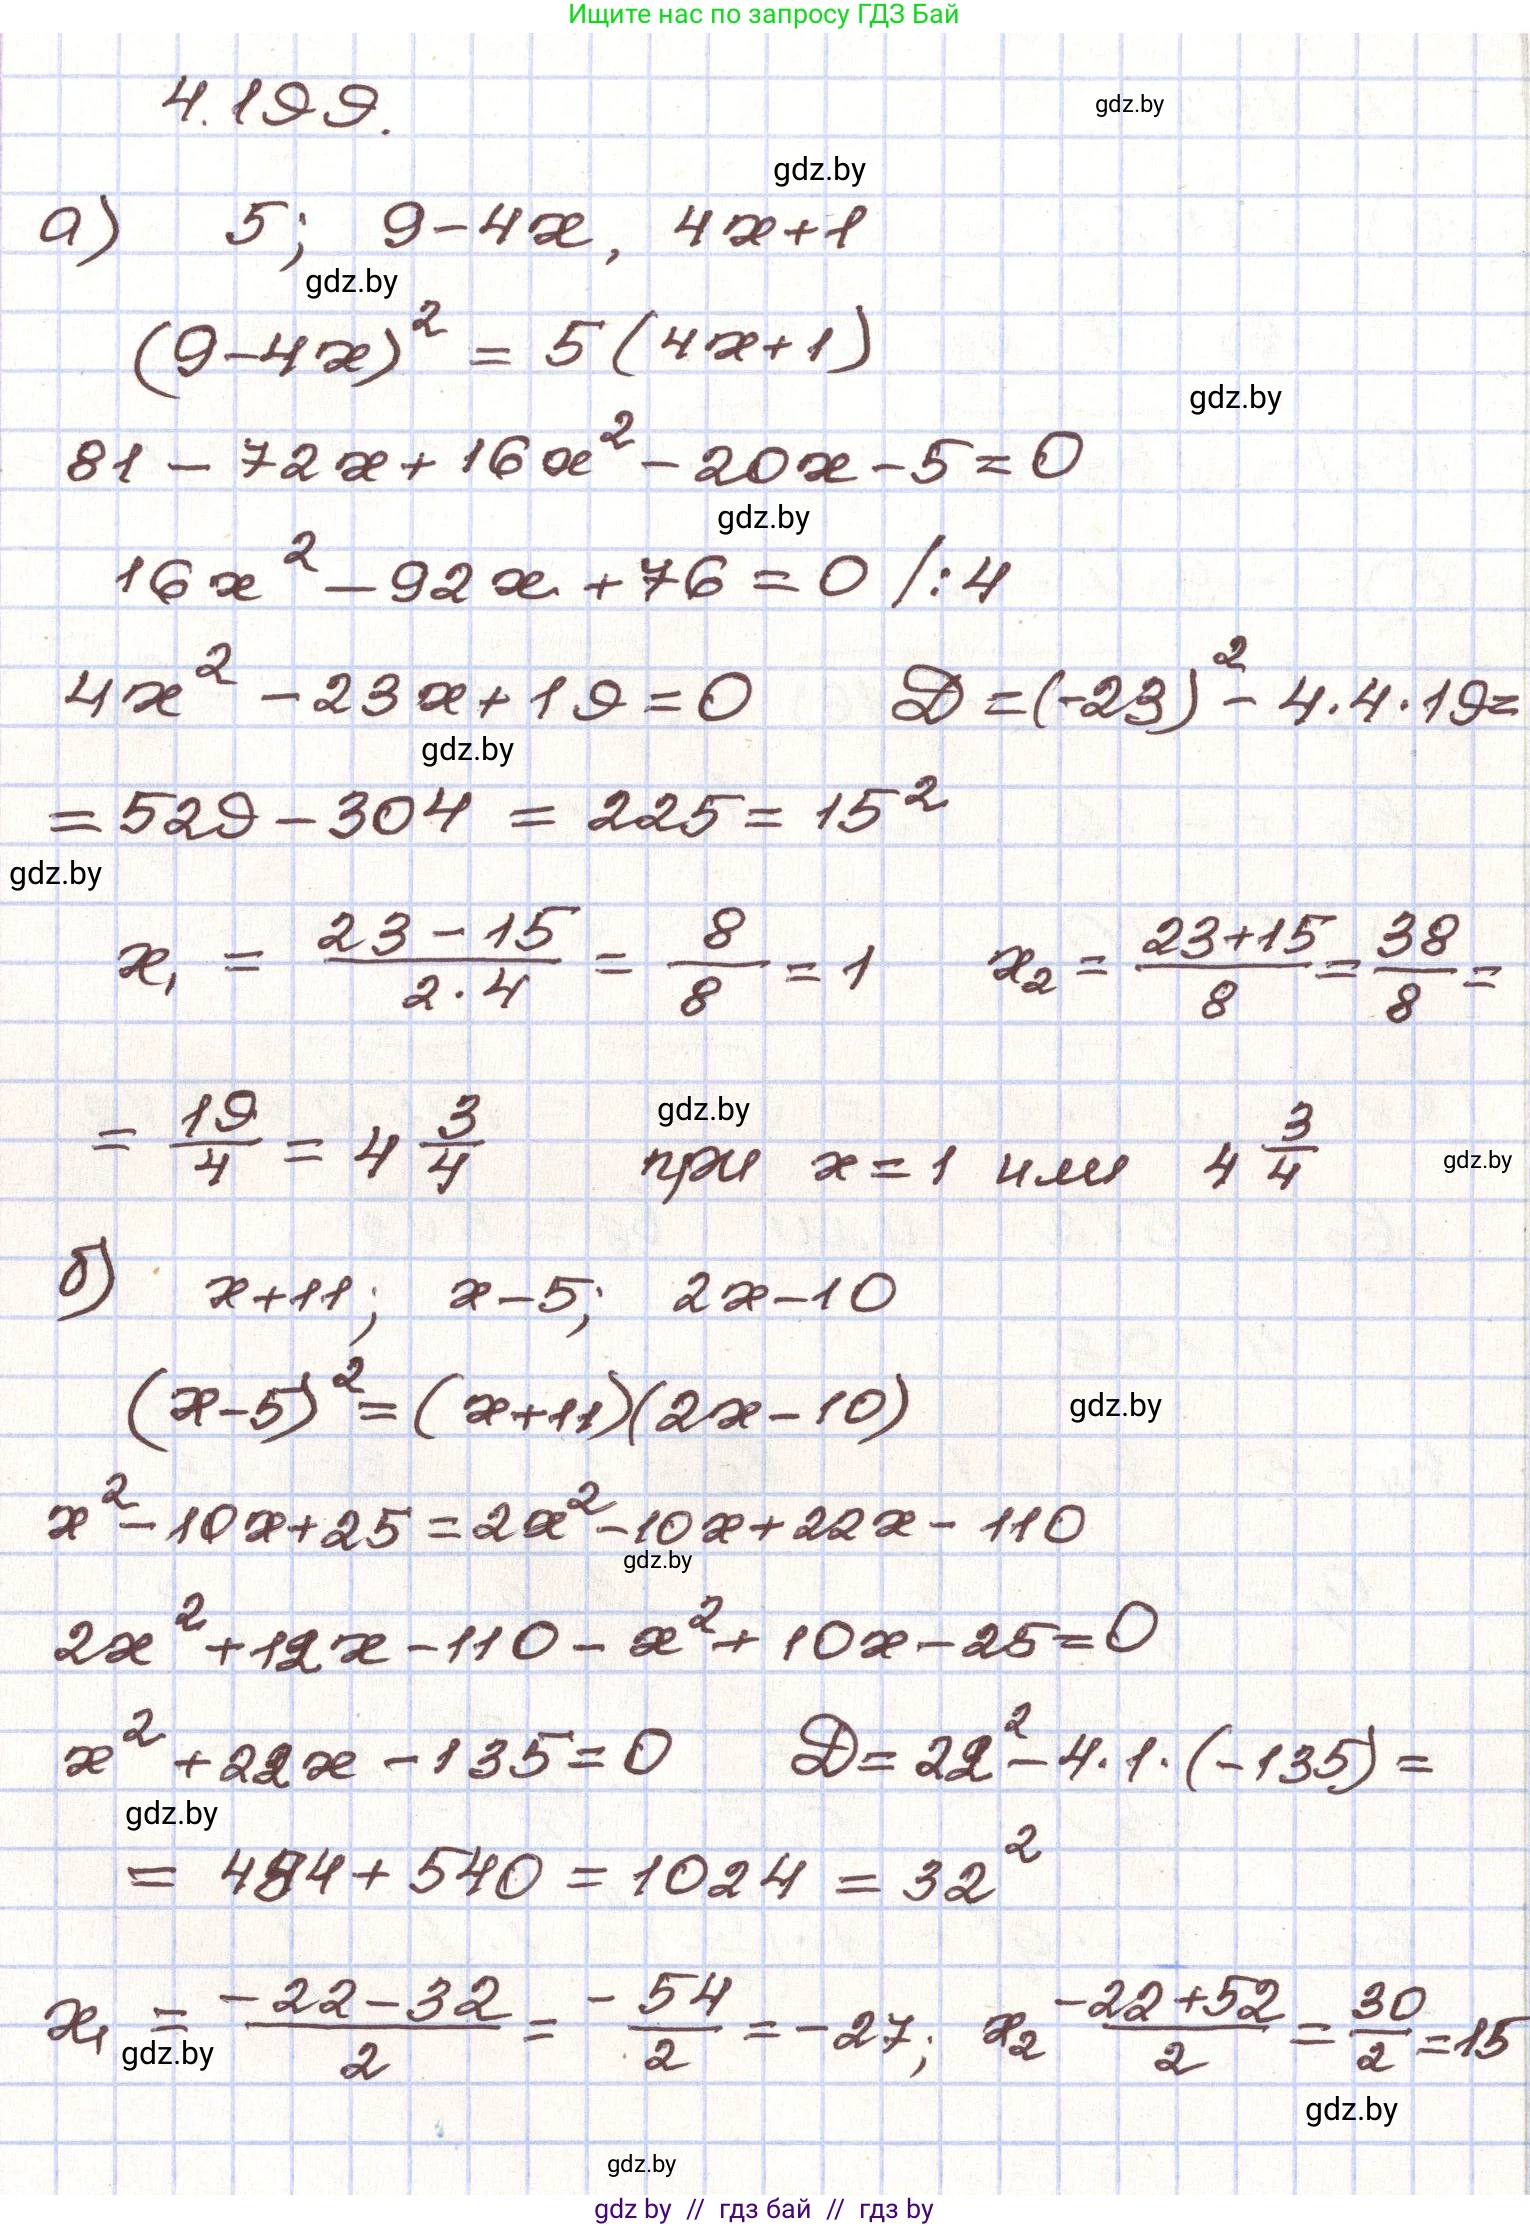 Ищите нас по запросу ГДЗ Бай
4.199.
gdz.by
gdz.by
а) 5; 9-4x, 4x+1
gdz.by
(9-4x)² = 5(4x+1)
gdz.by
81-72x+16x²-20x-5=0
gdz.by
16x²-92x+76=0 /:4
4x²-23x+19=0 D=(-23)²-4·4·19=
gdz.by
=529-304=225=15²
gdz.by
x₁ = (23-15)/(2·4) = 8/8 = 1 x₂ = (23+15)/8 = 38/8 =
gdz.by
= 19/4 = 4 3/4 при x=1 или 4 3/4
gdz.by
б) x+11; x-5; 2x-10
(x-5)²=(x+11)(2x-10)
gdz.by
x²-10x+25=2x²-10x+22x-110
gdz.by
2x²+12x-110-x²+10x-25=0
x²+22x-135=0 D=22²-4·1·(-135)=
gdz.by
= 484+540=1024=32²
x₁ = (-22-32)/2 = -54/2 = -27; x₂ (-22+52)/2 = 30/2 = 15
gdz.by
gdz.by
gdz.by
gdz by // гдз бай // гдз by